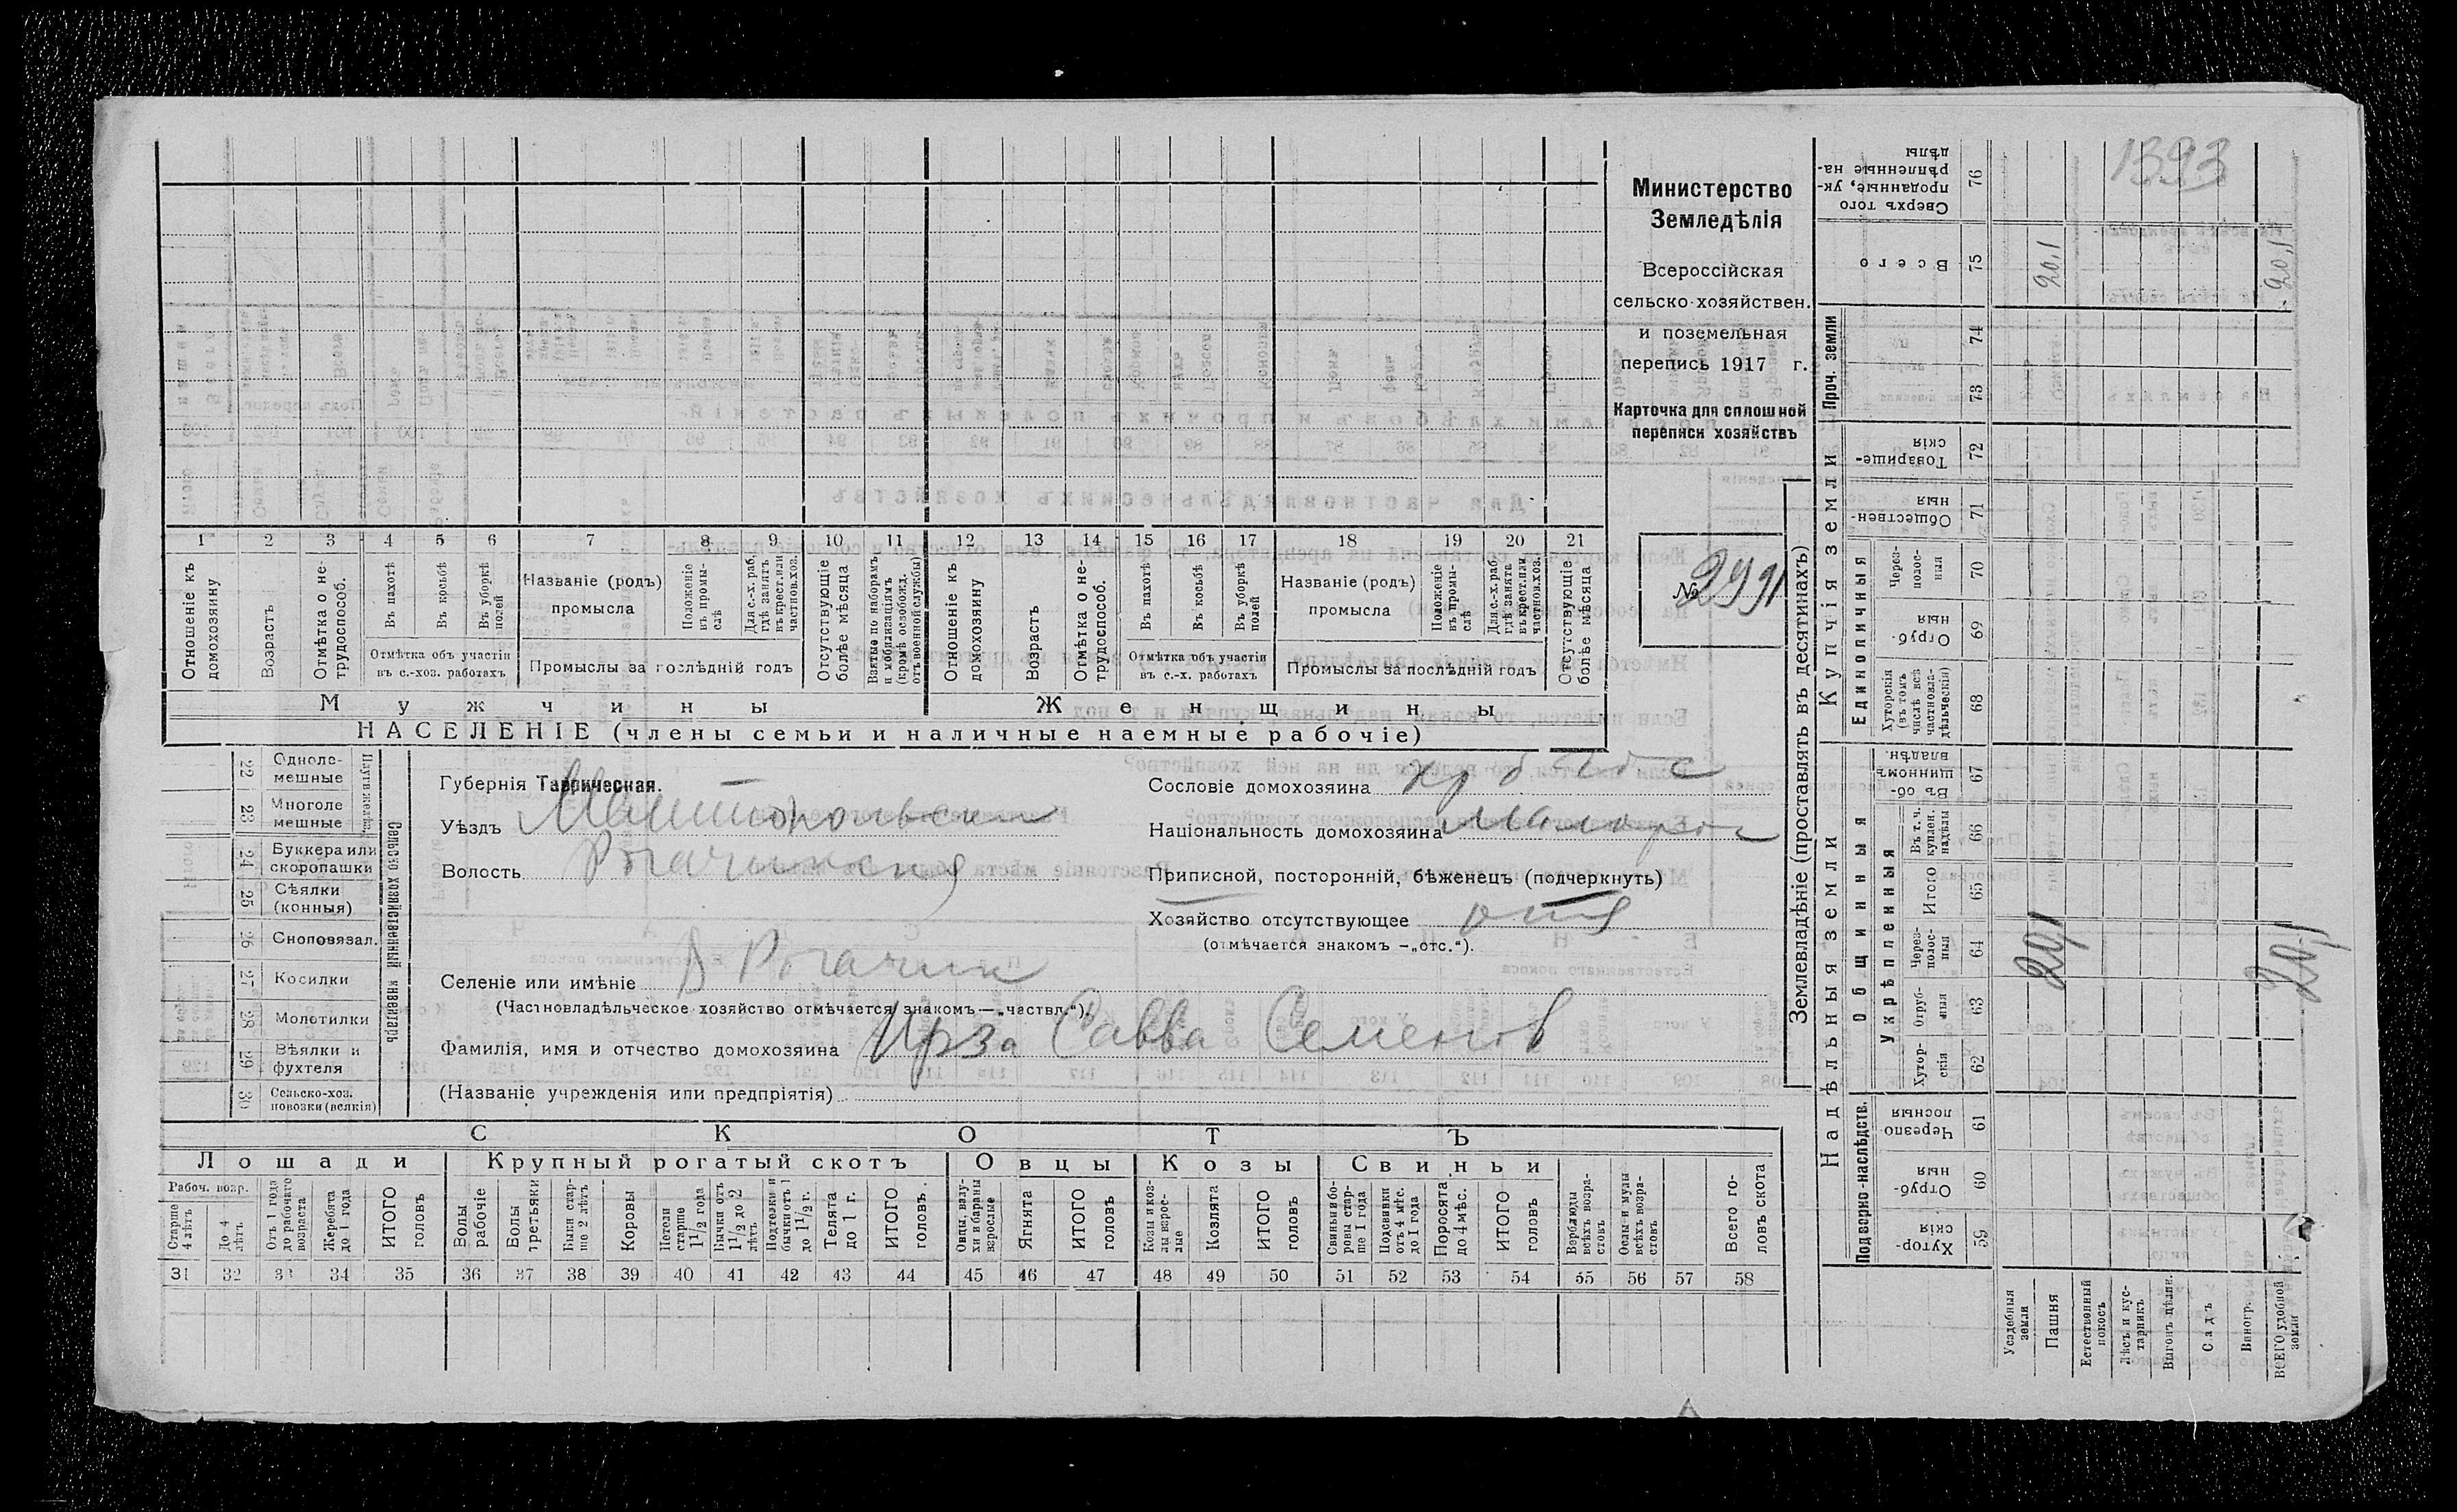 1393
Министерство
Земледѣлія
Всероссійская
сельско-хозяйствен.
и поземельная
перепись 1917 г.
Карточка для сплошной
переписи хозяйствъ
№ 2991
1 2 3 4 5 6 7 8 9 10 11 12 13 14 15 16 17 18 19 20 21
Отношеніе къ домохозяину
Возрастъ
Отмѣтка о нетрудоспособ.
Въ пахотѣ
Въ косьбѣ
Въ уборкѣ полей
Отмѣтка объ участіи
въ с.-хоз. работахъ
Названіе (родъ)
промысла
Положеніе въ промыслѣ
Для с.-х. раб. гдѣ занятъ въ крест. или частнов. хоз.
Промыслы за послѣдній годъ
Отсутствующіе болѣе мѣсяца
Взятые по наборамъ и мобилизаціямъ (кромѣ освобожд. отъ военной службы)
Отношеніе къ домохозяину
Возрастъ
Отмѣтка о нетрудоспособ.
Въ пахотѣ
Въ косьбѣ
Въ уборкѣ полей
Отмѣтка объ участіи
въ с.-х. работахъ
Названіе (родъ)
промысла
Положеніе въ промыслѣ
Для с.-х. раб. гдѣ занята въ крест. или частнов. хоз.
Промыслы за послѣдній годъ
Отсутствующіе болѣе мѣсяца
Мужчины
Женщины
НАСЕЛЕНІЕ (члены семьи и наличные наемные рабочіе)
Сельско хозяйственный инвентарь
22 Одноле-
мешные
23 Многоле
мешные
24 Буккера или
скоропашки
25 Сѣялки
(конныя)
26 Сноповязал.
27 Косилки
28 Молотилки
29 Вѣялки и
фухтеля
30 Сельско-хоз.
повозки (всякія)
Губернія Таврическая.
Уѣздъ
Волость
Селеніе или имѣніе В Рогачик
(Частновладѣльческое хозяйство отмѣчается знакомъ—„частвл.“).
Фамилія, имя и отчество домохозяина Ирза Савва Семенов
(Названіе учрежденія или предпріятія)
Сословіе домохозяина
Національность домохозяина
Приписной, посторонній, бѣженецъ (подчеркнуть)
Хозяйство отсутствующее
(отмѣчается знакомъ —„отс.“).
СКОТЪ
Лошади
Крупный рогатый скотъ
Овцы
Козы
Свиньи
Рабоч. возр.
Старше 4 лѣтъ
До 4 лѣтъ
Отъ 1 года до рабочаго возраста
Жеребята до 1 года
ИТОГО головъ
Волы рабочіе
Волы третьяки
Быки старше 2 лѣтъ
Коровы
Нетели старше 1½ года
Бычки отъ 1½ до 2 лѣтъ
Подтелки и бычки отъ 1 до 1½ г.
Телята до 1 г.
ИТОГО головъ
Овцы, валухи и бараны взрослые
Ягнята
ИТОГО головъ
Козы и козлы взрослые
Козлята
ИТОГО головъ
Свиньи и боровы старше 1 года
Подсвинки отъ 4 мѣс. до 1 года
Поросята до 4 мѣс.
ИТОГО головъ
Верблюды всѣхъ возрастовъ
Ослы и мулы всѣхъ возрастовъ
Всего головъ скота
31 32 33 34 35 36 37 38 39 40 41 42 43 44 45 46 47 48 49 50 51 52 53 54 55 56 57 58
Землевладѣніе (проставлять въ десятинахъ)
Купчія земли
Надѣльныя земли
Проч. земли
Единоличныя
Общинныя
Укрѣпленныя
Подворно-наслѣдств.
Сверхъ того проданные, укрѣпленные надѣлы 76
Всего 75
74
73
Товарищескія 72
Общественныя 71
Черезполосныя 70
Отрубныя 69
Хуторскія (въ томъ числѣ всѣ частновладѣльческія) 68
Въ общинномъ владѣн. 67
Въ т. ч. куплен. надѣлы 66
Итого 65
Черезполосныя 64
Отрубныя 63
Хуторскія 62
Черезполосныя 61
Отрубныя 60
Хуторскія 59
20,1
20,1
20,1
20,1
Усадебныя земли
Пашня
Естественный покосъ
Лѣсъ и кустарникъ
Выгонъ цѣлин.
Садъ
Виногр.
ВСЕГО удобной земли